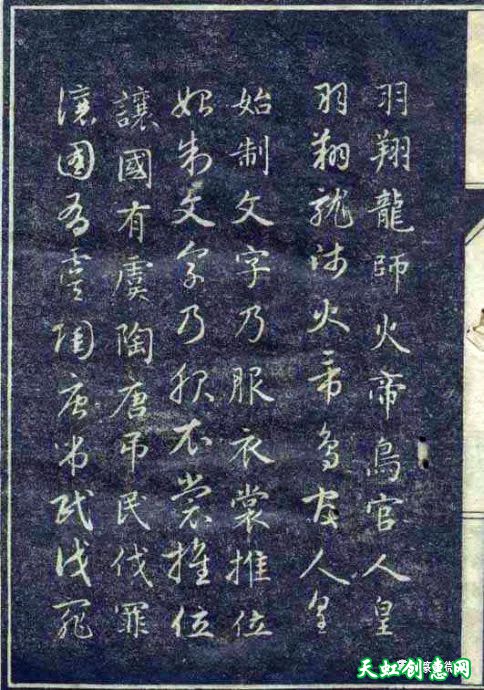 羽翔龍師火帝鳥官人皇
羽翔龍師火帝鳥官人皇
始制文字乃服衣裳推位
始制文字乃服衣裳推位
讓國有虞陶唐吊民伐罪
讓國有虞陶唐吊民伐罪
天虹创意网